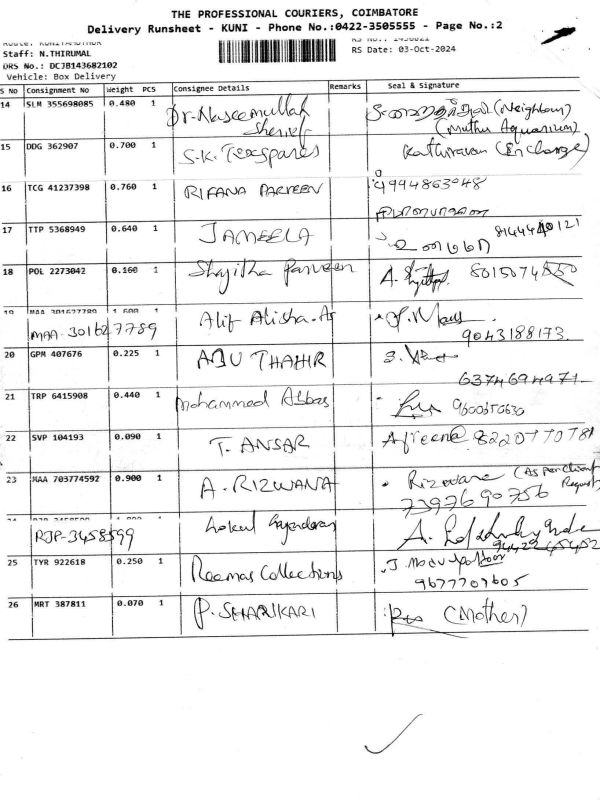 THE PROFESSIONAL COURIERS, COIMBATORE
Delivery Runsheet - KUNI - Phone No.:0422-3505555 - Page No.:2
Staff: N.THIRUMAL
RS Date: 03-Oct-2024
DRS No.: DCJB143682102
Vehicle: Box Delivery
S No Consignment No Weight PCS Consignee Details Remarks Seal & Signature
14 SLM 355698085 0.480 1 Dr. Naseemullah Sherief (Neighbour)
(Muthu Aquarium)
15 DDG 362907 0.700 1 S.K. Texspares Kathiravan (Incharge)
16 TCG 41237398 0.760 1 RIFANA PARVEEN 9994863048
17 TTP 5368949 0.640 1 JAMEELA
18 POL 2273042 0.160 1 Shajitha Parveen
19 MAA 301627789 1.600
MAA-301627789 Alif Alisha
9043188173
20 GPM 407676 0.225 1 ABU THAHIR
6374694971
21 TRP 6415908 0.440 1 Mohammed Abbas 9600650630
22 SVP 104193 0.090 1 T. ANSAR Afreen@ 8220770781
23 MAA 703774592 0.900 1 A. RIZWANA Rizwana (As per client Request)
7397690756
RJP-3458599 Gokul
25 TYR 922618 0.250 1 Reemas Collections
9677707605
26 MRT 387811 0.070 1 P. SHARIKARI (Mother)